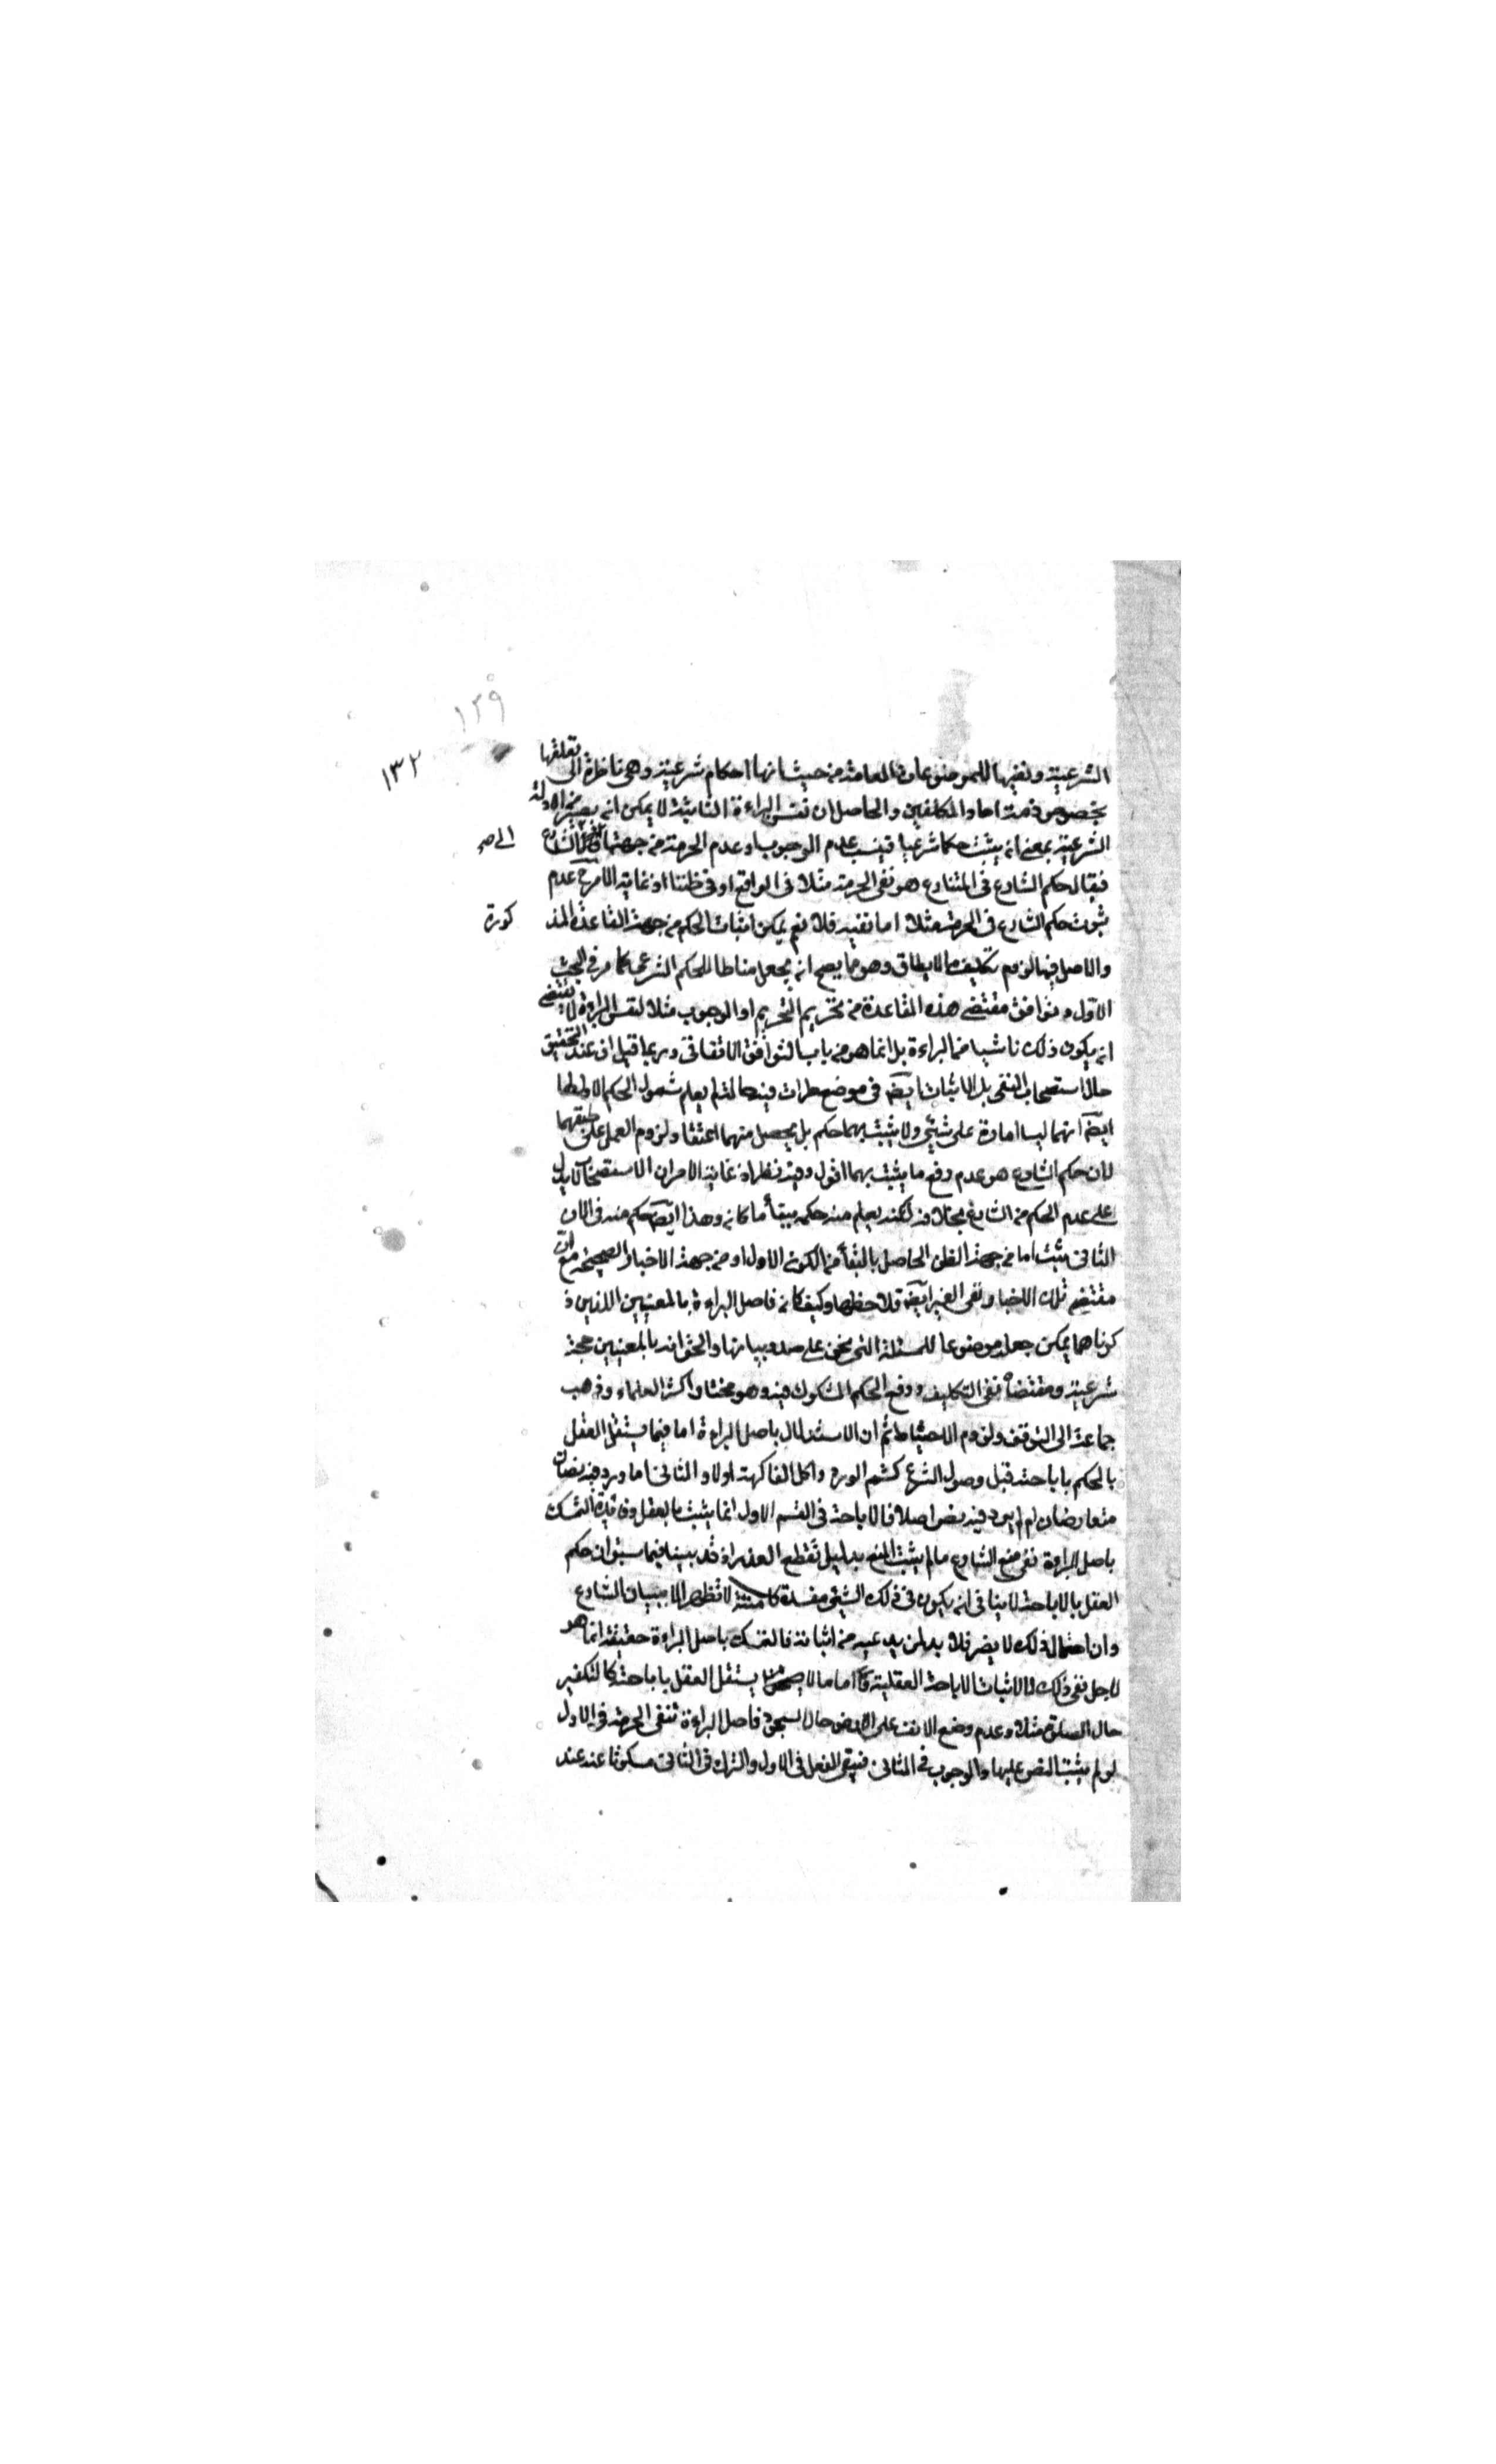 ١٢٩
١٣٢
الشرعية ونفيها للموضوعات العامة من حيث انها احكام شرعية وهى ناظرة الى تعلقها
بخصوص ذمة احاد المكلفين والحاصل ان نفس البراءة الثابتة لا يمكن انه يصير من الادلة
الشرعية بمعنى انه يثبت حكما شرعيا فينسب عدم الوجوب او عدم الحرمة من جهتها الى الشارع
فيقال حكم الشارع فى المتنازع هو نفى الحرمة مثلا فى الواقع او فى ظننا اذ غاية الامرح عدم
ثبوت حكم الشارع فى الحرمة مثلا اما نفيه فلا نعم يمكن اثبات الحكم من جهة القاعدة المذ
كورة
والاصل فيها لزوم تكليف ما لايطاق وهو مما يصح انه يجعل مناطا للحكم الشرعى كما مر فى البحث
الاول وتوافق مقتضى هذه القاعدة من تحريم التحريم او الوجوب مثلا لنفس البراءة لا يقتضى
انه يكون ذلك ناشيا من البراءة بل انما هو من باب التوافق الاتفاقى وربما قيل ان عند التحقيق
حال استصحاب النفى بل الاثبات ايضه فى موضع طرات فيه حالة لم يعلم شمول الحكم الاول لها
ايضه انهما ليسا امارة على شيئ ولا يثبت بهما حكم بل يحصل منهما اعتقاد لزوم العمل على طبقهما
لان حكم الشارع هو عدم رفع ما يثبت بهما اقول وفيه نظر اذ غاية الامر ان الاستصحاب لا يدل
على عدم الحكم من الشارع بخلافه لكنه يعلم منه حكمه ببقاء ما كانه وهذا ايضه حكم منه فى الان
الثانى يثبت اما من جهة الظن الحاصل بالبقاء من الكون الاول او من جهة الاخبار الصحيحة مع ان
مقتضى تلك الاخبار نفى الغير ايضه فلاحظها وكيف كانه فاصل البراءة بالمعنيين الذين ذ
كرناهما يمكن جعله موضوعا للمسئلة التى نحن على صدد بيانها والحق انه بالمعنيين حجة
شرعية ومقتضاه نفى التكليف ورفع الحكم المشكوك فيه وهو مختار اكثر العلماء وذهب
جماعة الى التوقف ولزوم الاحتياط ثم ان الاستدلال باصل البراءة اما فيما يستقل العقل
بالحكم باباحته قبل وصول الشرع كشم الورد واكل الفاكهة اولا والثانى اما ورد فيه نصان
متعارضان ام لم يرد فيه نص اصلا فالاباحة فى القسم الاول انما يثبت بالعقل وفائدة التمسك
باصل البراءة نفى منع الشارع ما لم يثبت المنع بدليل تقطع العذر اذ قد بينا فيما سبق ان حكم
العقل بالاباحة لا ينافى انه يكون فى ذلك الشيئ مفسدة كامنة لا تظهر الا ببيان الشارع
وان احتمال ذلك لا يضر فلا بد لمن يدعيه من اثباته فالتمسك باصل البراءة حقيقة انما هو
لاجل نفى ذلك لا لاثبات الاباحة العقلية واما ما لا يستقل العقل باباحته كالتكفير
حال الصلوة مثلا وعدم وضع الانف على الارض حال السجود فاصل البراءة تنفى الحرمة فى الاول
لو لم يثبت النص عليها والوجوب فى الثانى فيبقى الفعل فى الاول والترك فى الثانى مسكوتا عنه عند